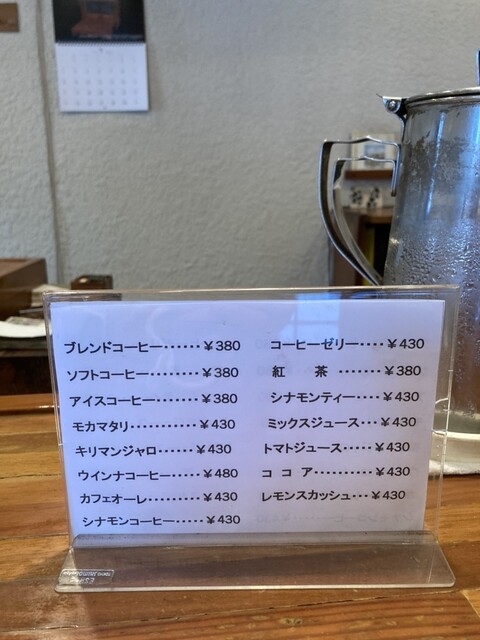 ブレンドコーヒー・・・・・・¥380
ソフトコーヒー・・・・・・・¥380
アイスコーヒー・・・・・・・¥380
モカマタリ・・・・・・・・・・・¥430
キリマンジャロ・・・・・・¥430
ウインナコーヒー・・・・・¥480
カフェオーレ・・・・・・・・・¥430
シナモンコーヒー・・・・・¥430
コーヒーゼリー・・・・¥430
紅 茶 ・・・・・・・¥380
シナモンティー・・・・¥430
ミックスジュース・・・¥430
トマトジュース・・・・・¥430
コ コ ア・・・・・・・・・・¥430
レモンスカッシュ・・・¥430